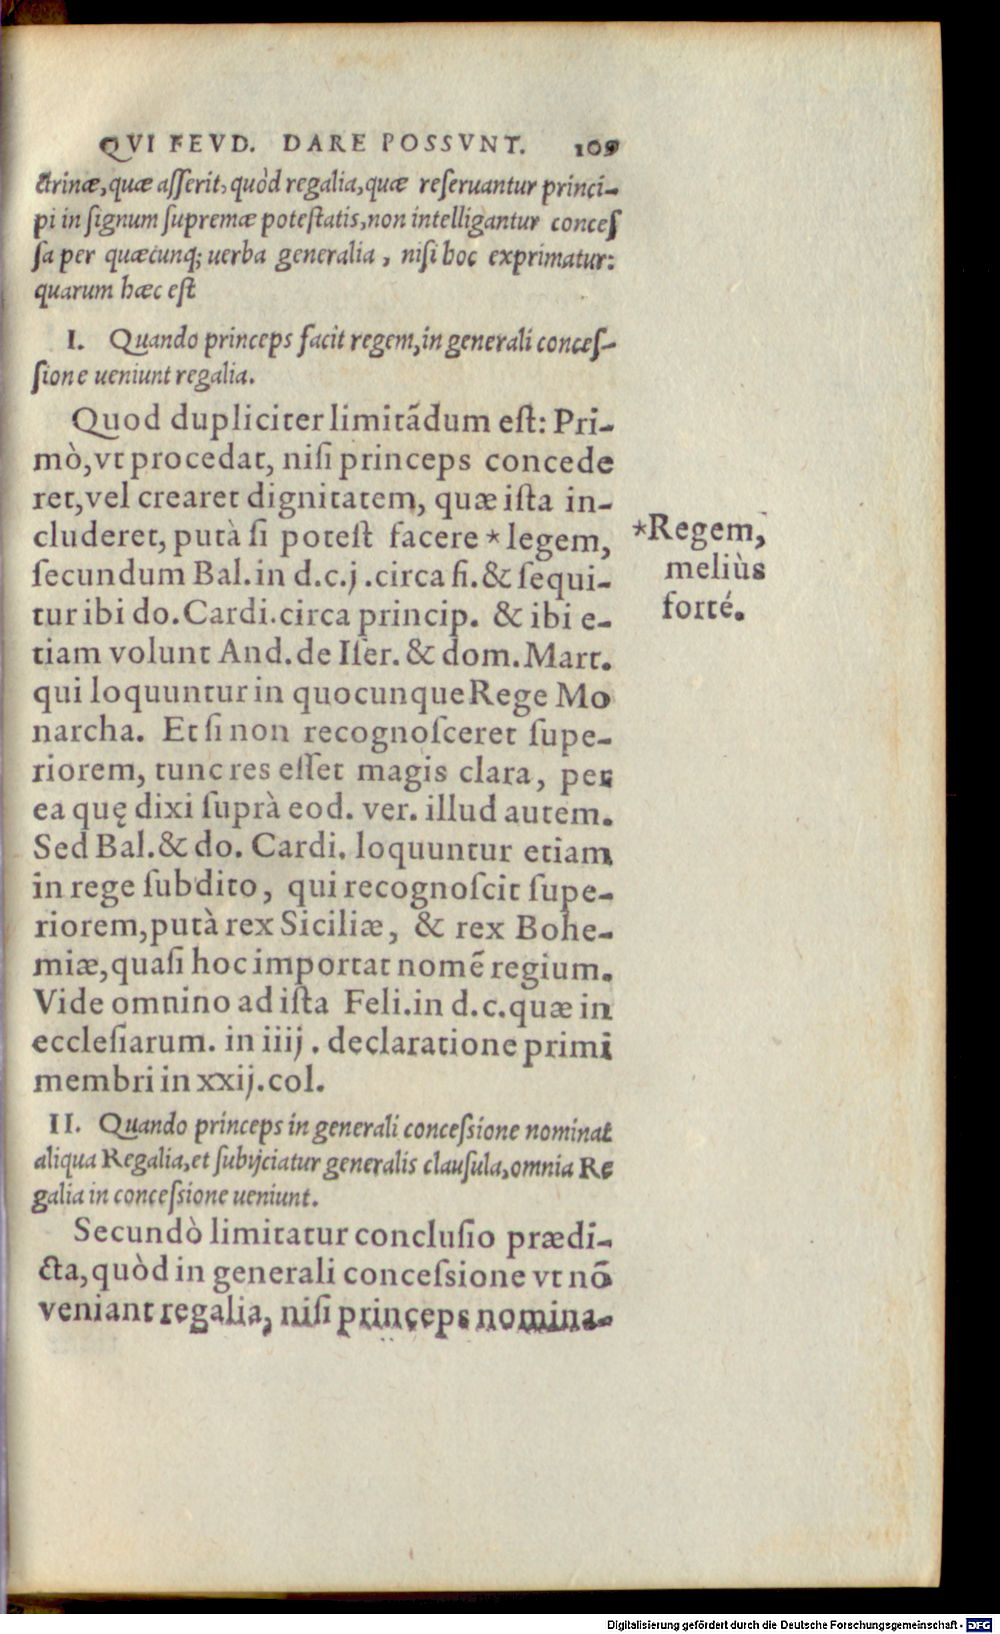 QVI FEVD. DARE POSSVNT. 109
ctrinæ, quæ aſſerit, quòd regalia, quæ reſeruantur princi-
pi in ſignum ſupremæ poteſtatis, non intelligantur conceſ
ſa per quæcunq; uerba generalia, niſi hoc exprimatur:
quarum hæc eſt
I. Quando princeps facit regem, in generali conceſ-
ſione ueniunt regalia.
Quod dupliciter limitãdum eſt: Pri-
mò, vt procedat, niſi princeps concede
ret, vel crearet dignitatem, quæ iſta in-
cluderet, putà ſi poteſt facere * legem,
ſecundum Bal. in d. c. j . circa fi. & ſequi-
tur ibi do. Cardi. circa princip. & ibi e-
tiam volunt And. de Iſer. & dom. Mart.
qui loquuntur in quocunque Rege Mo
narcha. Et ſi non recognoſceret ſupe-
riorem, tunc res eſſet magis clara, per
ea quę dixi ſuprà eod. ver. illud autem.
Sed Bal. & do. Cardi. loquuntur etiam
in rege ſubdito, qui recognoſcit ſupe-
riorem, putà rex Siciliæ, & rex Bohe-
miæ, quaſi hoc importat nomẽ regium.
Vide omnino ad iſta Feli. in d. c. quæ in
eccleſiarum. in iiij . declaratione primi
membri in xxij. col.
II. Quando princeps in generali conceſsione nominat
aliqua Regalia, et ſubijciatur generalis clauſula, omnia Re
galia in conceſsione ueniunt.
Secundò limitatur concluſio prædi-
cta, quòd in generali conceſsione vt nõ
veniant regalia, niſi princeps nomina-
*Regem,
meliùs
forté.
Digitalisierung gefördert durch die Deutsche Forschungsgemeinschaft - DFG